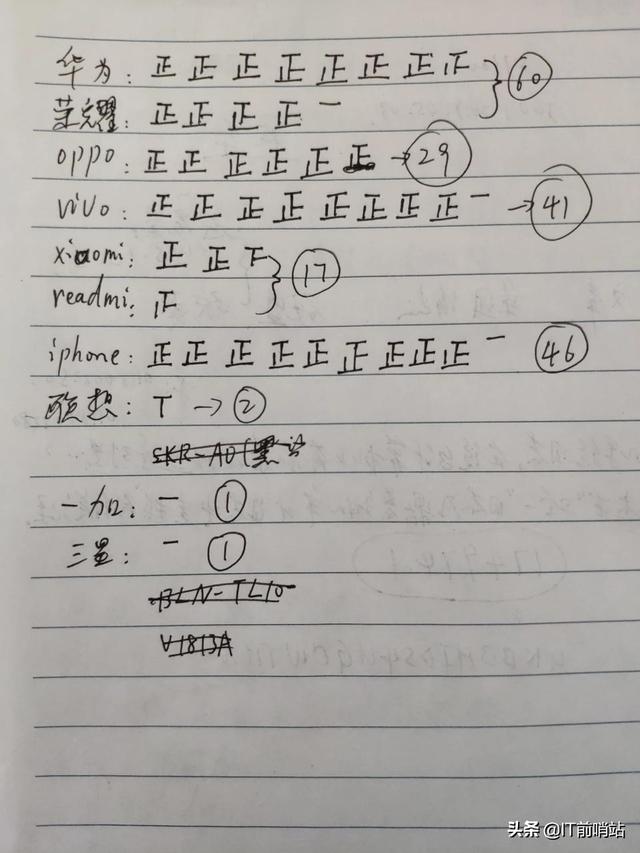 华为: 正 正 正 正 正 正 正 正
60
荣耀: 正 正 正 正 一
oppo: 正 正 正 正 正 正 → 29
vivo: 正 正 正 正 正 正 正 正 一 → 41
xiaomi: 正 正 下
17
readmi: 正
iphone: 正 正 正 正 正 正 正 正 正 一 46
联想: T → 2
SKR-A0(黑
一加: 一 1
三星: 一 1
BLN-TL10
V1813A
头条 @IT前哨站